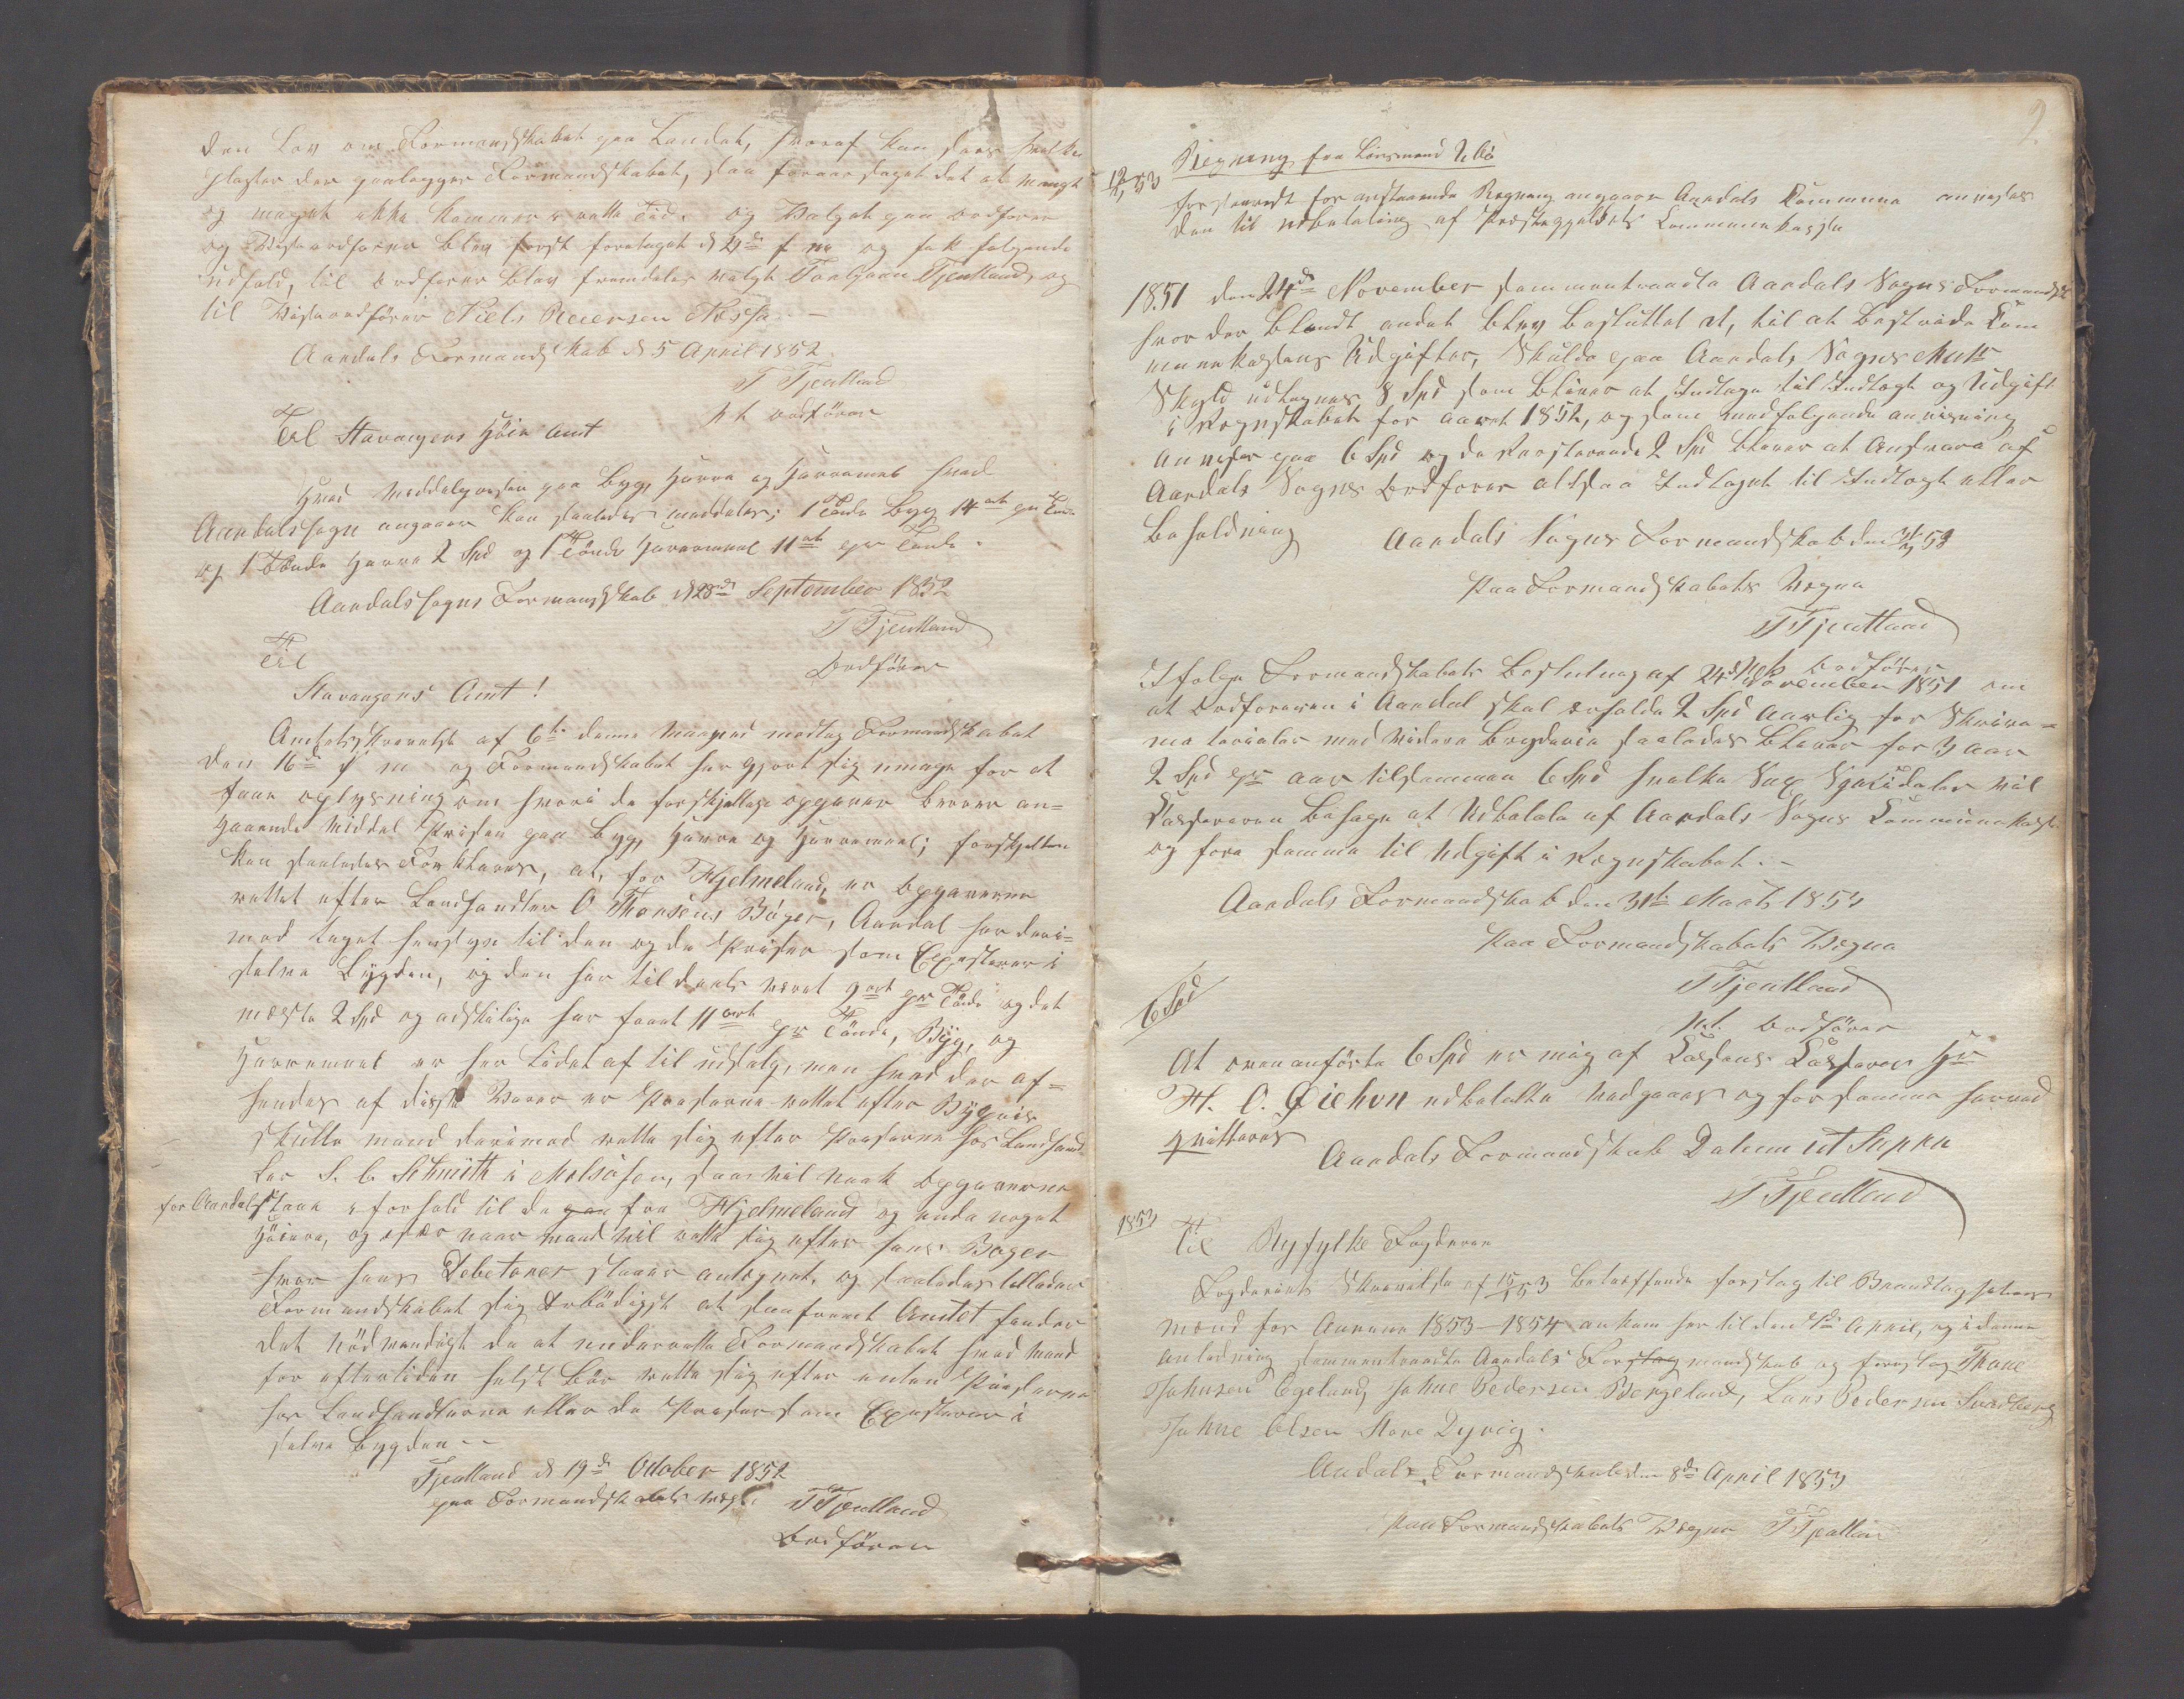 den Lov om Formandskabet paa Landet, hvoraf kan sees hvilke
pligter der paalægger Formandskabet, saa foraarsaget det at meget
og meget ikke kommer i rette Tid. og Valget paa ordfører
og Viseordfører blev først foretaget d 2de f m og fik følgende
udfald, til ordfører blev fremdeles valgt Torbjørn Tjentland, og
til Viseordfører Niels Reiersen Nessa. -
Aardals Formandskab d 5 April 1852
T Tjentland
p t ordfører
Til Stavangers Høie Amt
Hvad Meddelprisen paa Byg, Havre og Havremel hvad
Aardals sogn angaaer kan saaledes meddeles; 1 Tønde Byg 14 ort pr Tønde
og 1 Tønde Havre 2 Spd og 1 Tønde Havremel 11 ort pr Tønde.
Aardals sogns Formandskab d 28de September 1852
T Tjentland
Ordfører
Til
Stavangers Amt!
Amtets Skrivelse af 6te denne Maaned modtog Formandskabet
den 16de f m og Formandskabet har gjort sig umage for at
faae oplysning om hvori de forskjellige opgaver beroer an=
gaaende Middel Prisen paa Byg, Havre og Havremel; forskjellen
kan saaledes Forklares, at, for Hjelmeland, er opgaverne
rettet efter Landhandler O Thorsens Bøger, Aardal har deri=
mod taget hensyn til den og de Priser som Existerer i
selve Bygden, og den har til deels været 9 ort pr Tønde og det
meste 2 Spd og adskilige har faaet 11 ort pr Tønde, Byg, og
Havremel er her lidet af til udsalg, men hvad der af=
hendes af disse Varer er Priserne rettet efter Bygpris
skulle mand derimod rette sig efter Priserne hos Landhand
ler S. C. Schmith i Melsosen, saa vil nok opgaverne
for Aardal staae i forhold til de paa fra Hjelmeland og enda noget
Høiere, og især naar mand vil rette sig efter hans Bøger
hvor hans Debetorer staaer antegnet, og saaledes tillader
Formandskabet sig Ærbødigst at saafremt Amtet finder
det nødvendigt da at underrette Formandskabet hvad mand
for eftertiden helst bør rette sig efter enten Priserne
hos Landhandlerne eller de Priser som Existerer i
selve Bygden --
Tjentland d 19de October 1852
paa Formandskabets vegne T Tjentland
Ordfører
2
Regning fra Lensmand Ubø
12/2 53 forestaaende Regning angaaer Aardals Kommune anvises
den til udbetaling af Præstegjeldets Communekasse
1851 den 24de November sammentraadte Aardals Sogns Formandsk
hvor der blandt andet blev besluttet at, til at bestride Com
munekassens Udgifter, Skulde paa Aardals Sogns Matr
Skyld udlignes 8 Spd som bliver at Indtage til Indtægt og Udgift
i Regnskabet for aaret 1852, og som medfølgende anvisning
anviser paa 6 Spd og de Resterende 2 Spd bliver at Ansvare af
Aardals Sogns Ordfører altsaa Indtaget til Indtægt eller
beholdning Aardals Sogns Formandskab den 31/3 53
Paa Formandskabets Vegne
T Tjentland
p t ordfører
I følge Formandskabets Beslutning af 24de November 1851 om
at Ordføreren i Aardal skal erholde 2 Spd aarlig for Skrive=
materialer med videre Bryderie saaledes bliver for 3 aar
2 Spd pr aar tilsammen 6 Spd hvilke Sex Speciedaler vil
Kassereren behage at Udbetale af Aardals Sogns Communekasse
og føre samme til Udgift i Regnskabet. -
Aardals Formandskab den 31te Marts 1853
Paa Formandskabets Vegne
T Tjentland
p.t. ordfører
6 Spd
At ovenanførte 6 Spd er mig af Kassens Kasserer Hr
H. O. Øiehvn udbetalte vedgaaes og for samme herved
qvitteres
Aardals Formandskab Datum ut Supra
T Tjentland
1853 Til Ryfylke Fogderie
Fogderiets Skrivelse af 15/1 53 betreffende forslag til Brandtagsations
mænd for Aarene 1853-1854 ankom her til den 4de April, og i denne
anledning sammentraadte Aardals Forslag mandskab og foreslog Thore
Johnsen Egeland, Johne Pedersen Bergeland, Lars Pedersen Svadberg
Johne Olsen Store Dyrvig.
Aardals Formandskab den 8de April 1853
Paa Formandskabets Vegne T Tjentland